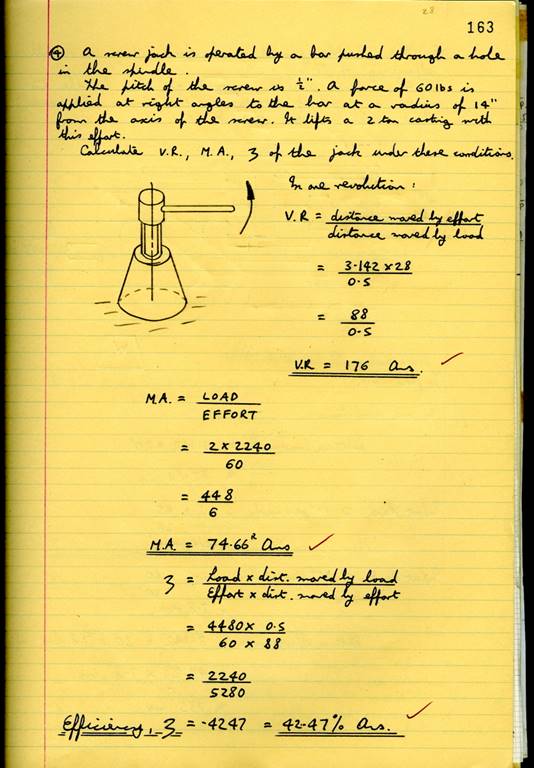 28
163
④ A screw jack is operated by a bar pushed through a hole
in the spindle.
The pitch of the screw is ½". A force of 60 lbs is
applied at right angles to the bar at a radius of 14"
from the axis of the screw. It lifts a 2 ton casting with
this effort.
Calculate V.R., M.A., η of the jack under these conditions.
In one revolution:
V.R = distance moved by effort
distance moved by load
= 3·142 × 28
0·5
= 88
0·5
V.R = 176 Ans.
M.A. = LOAD
EFFORT
= 2 × 2240
60
= 448
6
M.A. = 74·66ᴿ Ans
η = Load × dist. moved by load
Effort × dist. moved by effort
= 4480 × 0·5
60 × 88
= 2240
5280
Efficiency, η = ·4247 = 42·47% Ans.